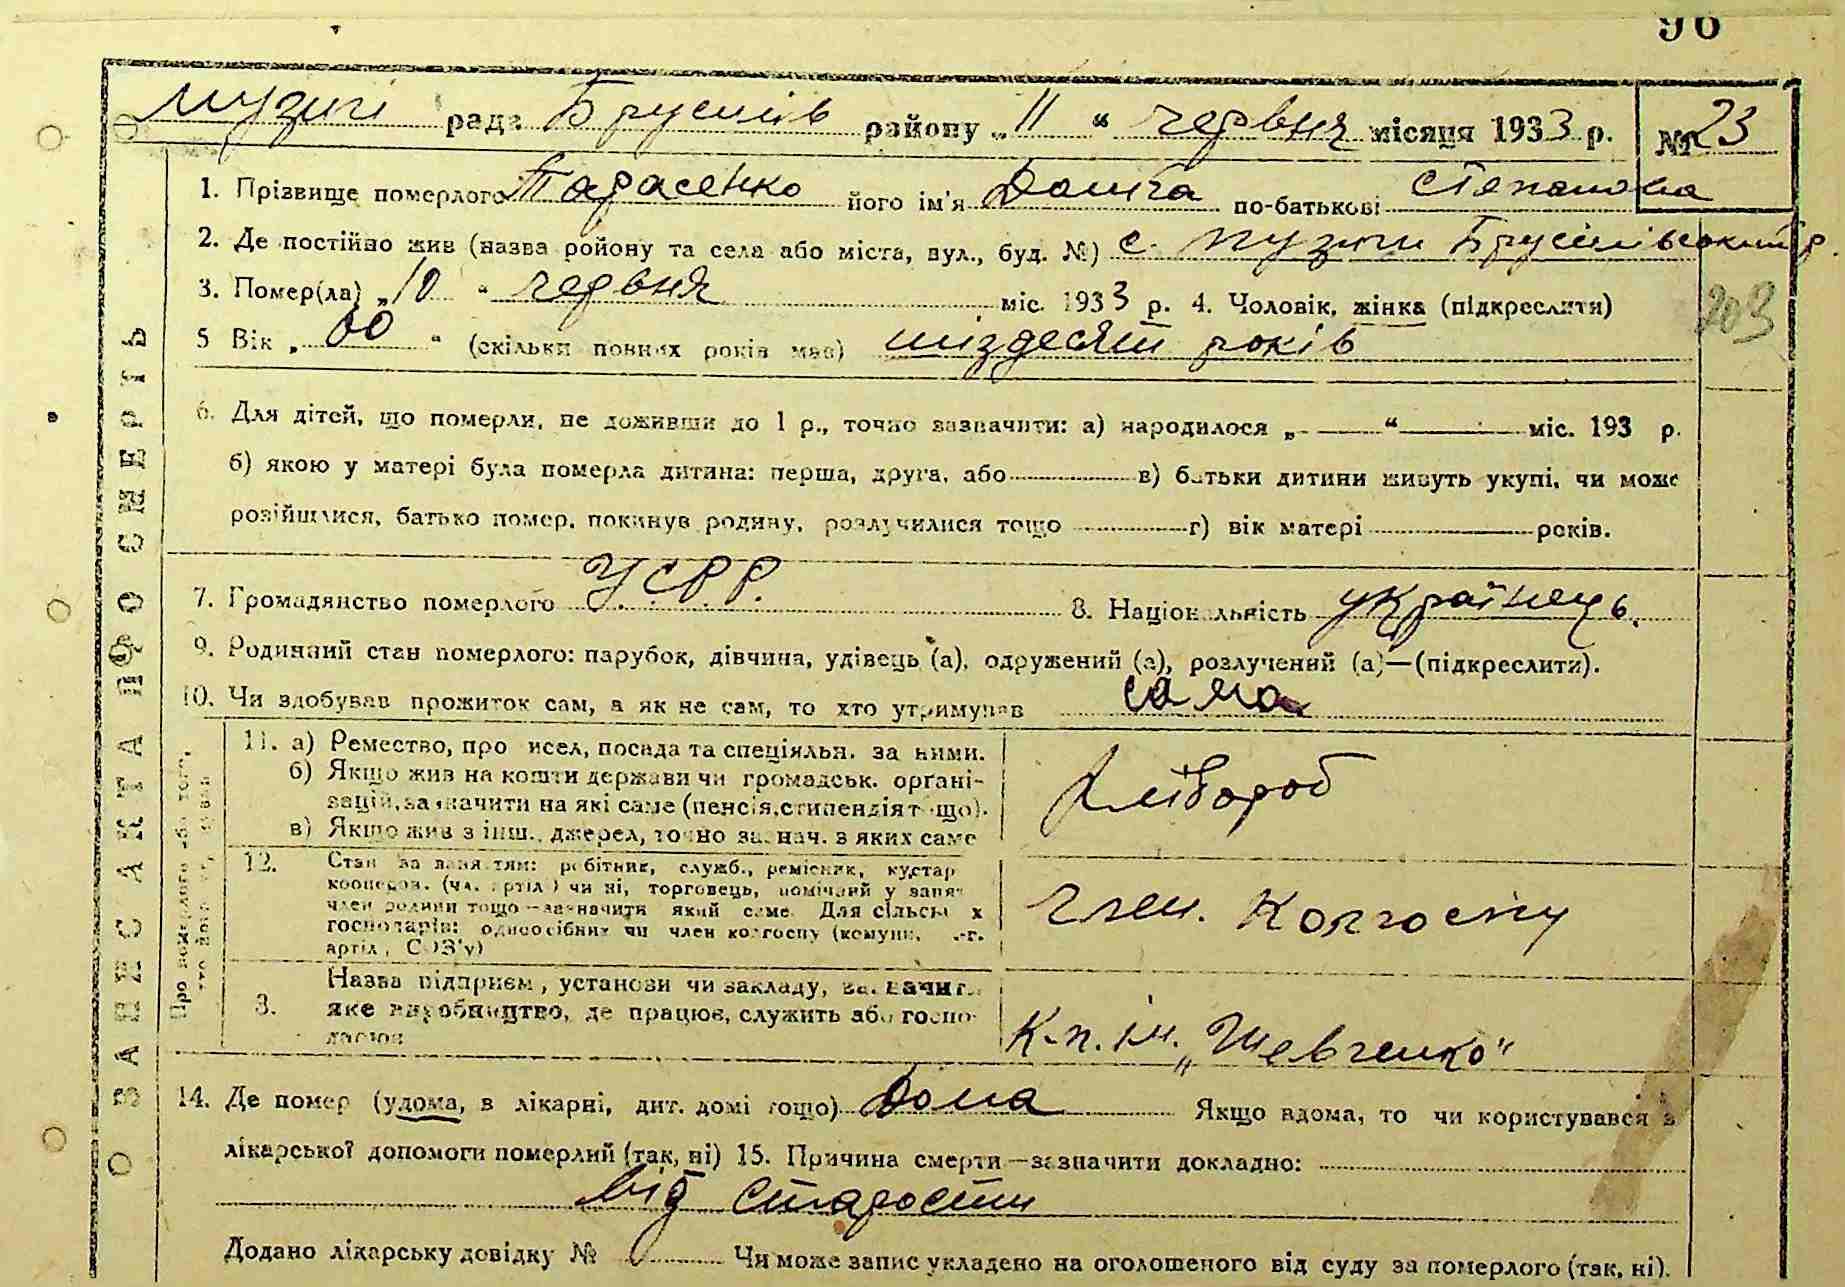 96
Музичі рада Брусилів району „11“ червня місяця 1933 р. № 23
1. Прізвище померлого Тарасенко його ім'я по-батькові Степанова
2. Де постійно жив (назва ройону та села або міста, вул., буд. №) с. Музичи Брусилівський р
3. Помер(ла) „10“ червня міс. 1933 р. 4. Чоловік, жінка (підкреслити)
203
5 Вік „60“ (скільки повних років мав) шіздесят років
6. Для дітей, що померли, не доживши до 1 р., точно зазначити: а) народилося „—“ — міс. 193 р.
б) якою у матері була померла дитина: перша, друга, або в) батьки дитини живуть укупі, чи може
розійшлися, батько помер, покинув родину, розлучилися тощо г) вік матері років.
7. Громадянство померлого УСРР. 8. Національність українець.
9. Родинний стан померлого: парубок, дівчина, удівець (а), одружений (а), розлучений (а)—(підкреслити).
10. Чи здобував прожиток сам, а як не сам, то хто утримував сама
ЗАПЕС АКТА ПРО СМЕРТЬ
Про померлого або того,
11. а) Ремество, про исел, посада та спеціяльн. за ними.
б) Якщо жив на кошти держави чи громадськ. орґані-
зацій, зазначити на які саме (пенсія, стипендія тощо).
в) Якщо жив з інш. джерел, точно зазнач. з яких саме
Хлібороб
12. Стан за заняттям: робітник, служб., ремісник, кустар
кооперов. (чл. артіл.) чи ні, торговець, помічний у занят
член родини тощо—зазначити який саме. Для сільськ х
господарів: одноосібник чи член колгоспу (комуни, с.-г.
артіл., СОЗ'у)
член. Колгоспу
3. Назва підприєм., установи чи закладу, зазначити
яке виробництво, де працює, служить або госпо-
дарює
К-п. ім. „Шевченко“
14. Де помер (удома, в лікарні, дит. домі тощо) дома Якщо вдома, то чи користувався з
лікарської допомоги померлий (так, ні) 15. Причина смерти—зазначити докладно:
від старости
Додано лікарську довідку № Чи може запис укладено на оголошеного від суду за померлого (так, ні).